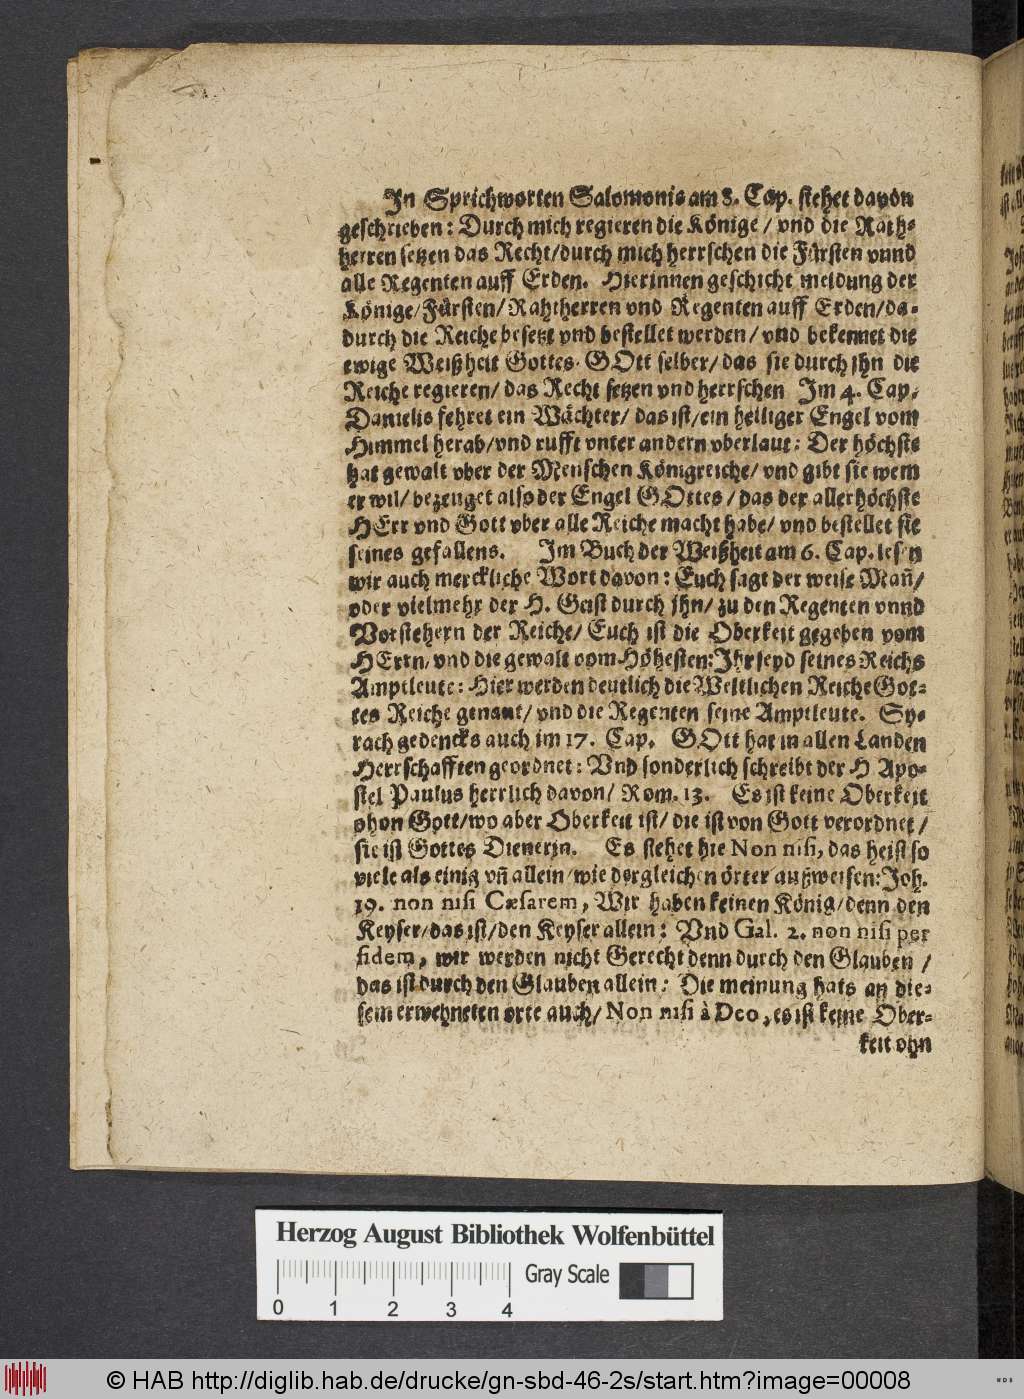 In Sprichworten Salomonis am 8. Cap. stehet davon
geschrieben: Durch mich regieren die Könige / vnd die Rath-
herren setzen das Recht/durch mich herrschen die Fürsten vnnd
alle Regenten auff Erden. Hierinnen geschicht meldung der
Könige/Fürsten/Rahtherren vnd Regenten auff Erden/da-
durch die Reiche besetzt vnd bestellet werden/ vnd bekennet die
ewige Weißheit Gottes GOtt selber/ das sie durch ihn die
Reiche regieren/ das Recht setzen vnd herrschen Im 4. Cap.
Danielis fehret ein Wächter/ das ist/ein heiliger Engel vom
Himmel herab/vnd rufft vnter andern vberlaut: Der höchste
hat gewalt vber der Menschen Königreiche/ vnd gibt sie wem
er wil/ bezeuget also der Engel GOttes / das der allerhöchste
HErr vnd Gott vber alle Reiche macht habe/ vnd bestellet sie
seines gefallens. Im Buch der Weißheit am 6. Cap. lesen
wir auch merckliche Wort davon: Euch sagt der weise Mañ/
oder vielmehr der H. Geist durch ihn/ zu den Regenten vnnd
Vorstehern der Reiche/ Euch ist die Oberkeit gegeben vom
HErrn/ vnd die gewalt vom Höhesten: Ihr seyd seines Reichs
Amptleute: Hier werden deutlich die Weltlichen Reiche Got-
tes Reiche genant/ vnd die Regenten seine Amptleute. Sy-
rach gedencks auch im 17. Cap. GOtt hat in allen Landen
Herrschafften geordnet: Vnd sonderlich schreibt der H Apo-
stel Paulus herrlich davon/ Rom. 13. Es ist keine Oberkeit
ohon Gott/wo aber Oberkeit ist/ die ist von Gott verordnet /
sie ist Gottes Dienerin. Es stehet hie Non nisi, das heist so
viele als einig vñ allein/wie dergleichen örter außweisen: Joh.
19. non nisi Cæsarem, Wir haben keinen König/denn den
Keyser/das ist/den Keyser allein: Vnd Gal. 2. non nisi per
fidem, wir werden nicht Gerecht denn durch den Glauben /
das ist durch den Glauben allein: Die meinung hats an die-
sem erwehneten orte auch/ Non nisi à Deo, es ist keine Ober-
keit ohn
Herzog August Bibliothek Wolfenbüttel
Gray Scale
0 1 2 3 4
© HAB http://diglib.hab.de/drucke/gn-sbd-46-2s/start.htm?image=00008